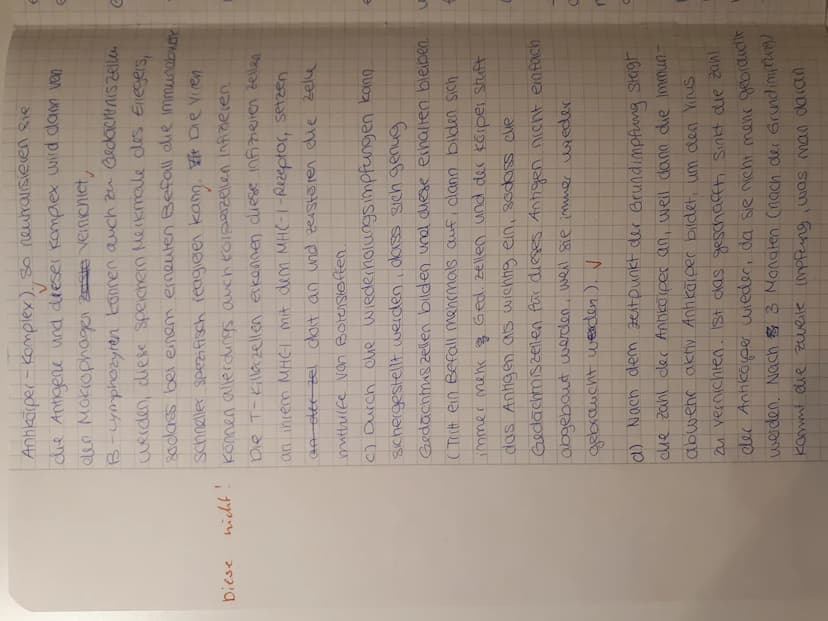 Antikörper-Komplex). So neutralisieren sie
die Antigene und dieser Komplex wird dann von
den Makrophagen vernichtet.
B-Lymphozyten können auch zu Gedächtniszellen
werden, diese speichern Merkmale des Erregers,
sodass bei einem erneuten Befall die Immunabwehr
schneller spezifisch reagieren kann. Die Viren
können allerdings auch Körperzellen infizieren.
Diese nicht!
Die T-Killerzellen erkennen diese infizierten Zellen
an ihrem MHC-1 mit dem MHC-1-Rezeptor, setzen
an der Zel dort an und zerstören die Zelle
mithilfe von Botenstoffen.
c) Durch die Wiederholungsimpfungen kann
sichergestellt werden, dass sich genug
Gedächtniszellen bilden und diese erhalten bleiben.
(Tritt ein Befall mehrmals auf, dann bilden sich
immer mehr Ged. zellen und der Körper stuft
das Antigen als wichtig ein, sodass die
Gedächtniszellen für dieses Antigen nicht einfach
abgebaut werden, weil sie immer wieder
gebraucht werden).
d) Nach dem Zeitpunkt der Grundimpfung steigt
die Zahl der Antikörper an, weil dann die Immun-
abwehr aktiv Antikörper bildet, um den Virus
zu vernichten. Ist das geschafft, sinkt die Zahl
der Antikörper wieder, da sie nicht mehr gebraucht
werden. Nach 3 Monaten (nach der Grundimpfung)
kommt die zweite Impfung, was man daran